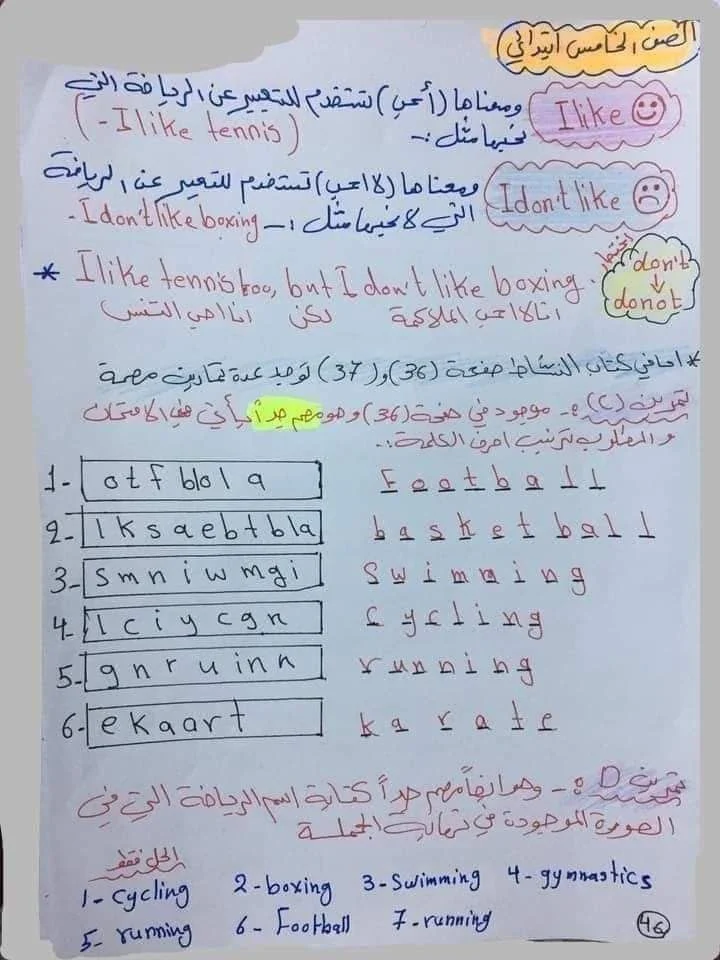 الصف الخامس ابتدائي
I like ومعناها (أحب) تستخدم للتعبير عن الرياضة التي
نحبها مثل :- (- I like tennis)
I don't like ومعناها (لا احب) تستخدم للتعبير عن الرياضة
التي لا نحبها مثل :- - I don't like boxing
* I like tennis too, but I don't like boxing.
انا احب التنس لكن انا لا احب الملاكمة
اختصار
don't
↓
donot
* اما في كتاب النشاط صفحة (36) و (37) توجد عدة تمارين مهمة
تمرين (C) :- موجود في صفحة (36) وهو مهم جداً يأتي في الامتحان
و المطلوب ترتيب احرف الكلمة :-
1- otfblola Football
2- lksaebtbla basketball
3- smniwmgi Swimming
4- lciycgn cycling
5- gnruinn running
6- ekaart karate
تمرين D :- وهو ايضاً مهم جداً كتابة اسم الرياضة التي في
الصورة الموجودة في نهاية الجملة
الحل فقط
1- cycling 2- boxing 3- Swimming 4- gymnastics
5- running 6- Football 7- running
46